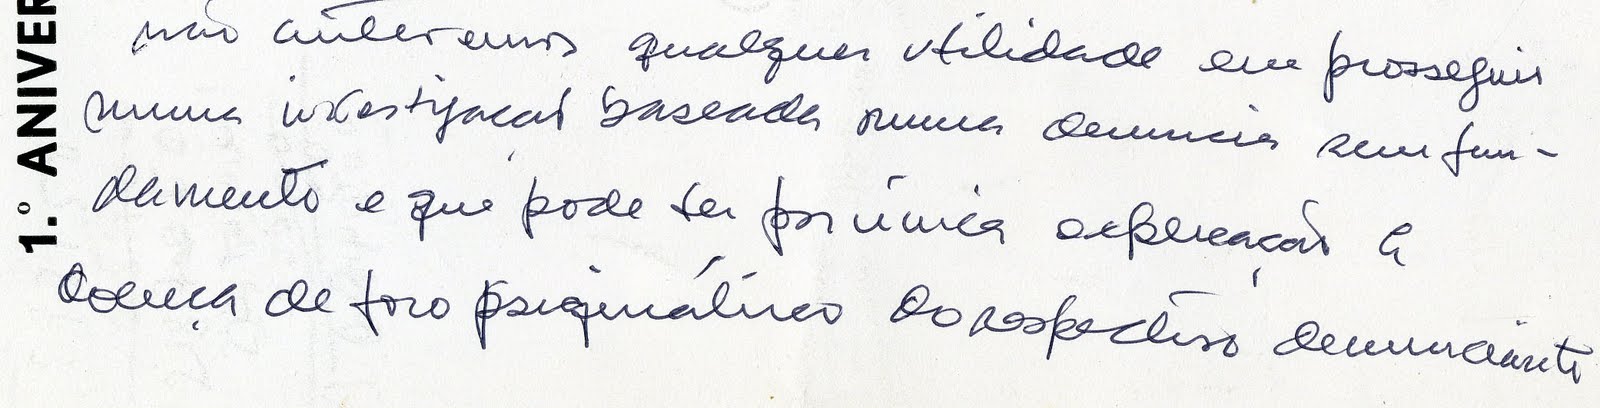 1.º ANIVER
não anteremos qualquer utilidade em prosseguir
numa investigação baseada numa denuncia sem fun-
damento e que pode ter por única explicação a
doença de foro psiquiátrico do respectivo denunciante